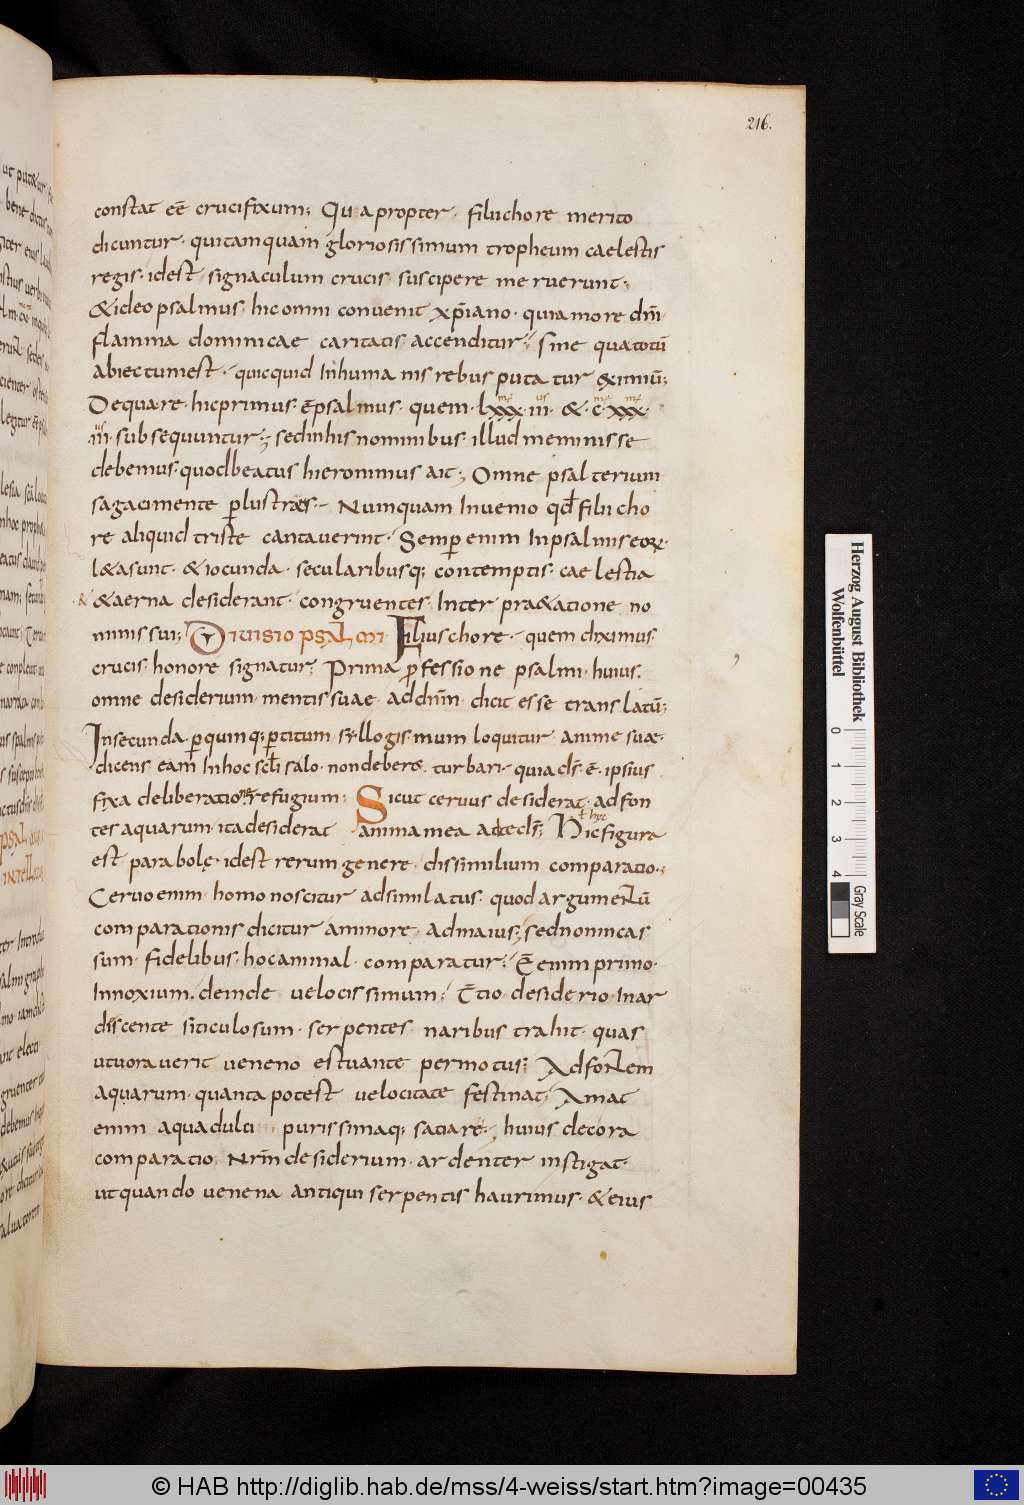 216.
constat eē crucifixum; Quapropter · filiichore merito
dicuntur · quitamquam gloriosissimum tropheum caelestis
regis · idest · signaculum crucis suscipere meruerunt;
&ideo psalmus · hic omni convenit xp̄iano · quia more dn̄i·
flamma dominicae caritatis accenditur; sine qua totū
abiectumest · quicquid Inhumanis rebus putatur eximiū;
Dequa re · hicprimus · ē psalmus · quem · lxxx·iii· & · c·xxx·
iii· subsequuntur; sedinhis nominibus · illud meminisse
debemus · quodbeatus hieronimus ait; Omne psalterium
sagacimente p̱lustrans · Numquam Invenio qđ filii cho
re aliquid triste cantaverint · Semp̱ enim In psalmis eorꝝ·
l&asunt · & iocunda · secularibusq; contemptis · caelestia
&aerna desiderant · congruentes · Inter pra&atione no
minis sui; Divisio psalmi · Filiuschore · quem diximus
crucis honore signatur; Prima p̱fessione psalmi · huius·
omne desiderium · mentis suae addn̄m · dicit esse translatū;
Insecunda p̱quinq;p̱titum syllogismum loquitur anime suae·
dicens eam Inhoc sc̄li salo · non debere turbari · quia ds̄ · ē · ipsius
fixa deliberatione refugium; Sicut cervus desiderat · adfon
tes aquarum · ita desiderat anima mea adte ds̄; Hic figura
est parabolę · idest rerum genere · dissimilium comparatio·;
Cervo enim · homo noscitur adsimilatus · quod argumentū
comparationis dicitur aminore · admaius; sed non incas
sum · fidelibus · hoc animal · comparatur; Ē enim primo·
Innoxium · deinde velocissimum; T̄tio desiderio · Inar
discente siticulosum · serpentes naribus trahit · quas
utvoraverit veneno estuante permotus; Adfontem
aquarum · quanta potest velocitate festinat; Amat
enim aqua dulci purissimaq; satiare; huius decora
comparatio Nr̄m desiderium · ardenter instigat·
ut quando venena antiqui serpentis haurimus · & eius
Herzog August Bibliothek
Wolfenbüttel
0 1 2 3 4
Gray Scale
© HAB http://diglib.hab.de/mss/4-weiss/start.htm?image=00435